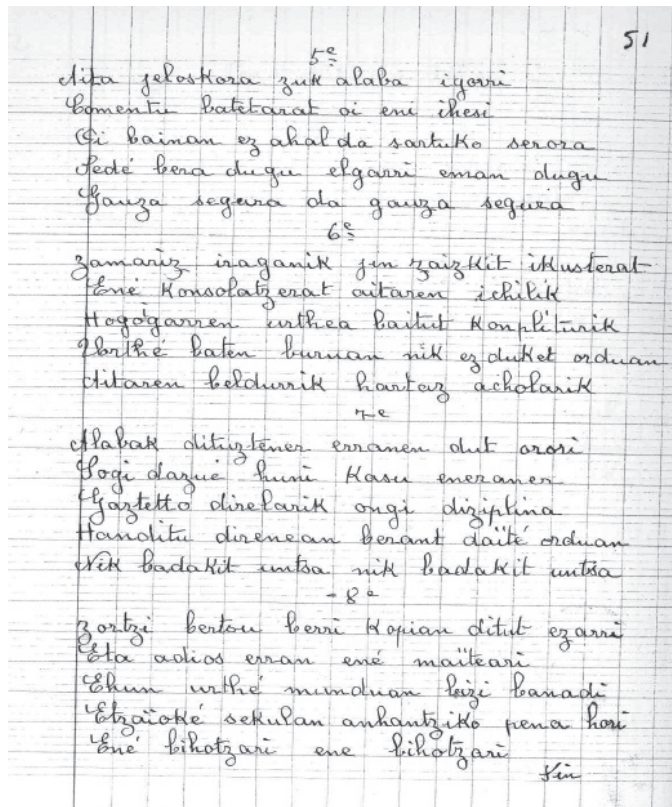 51
5e
Aita jeloskora zuk alaba igorri
Comentu batetarat oi eni ihesi
Oi bainan ez ahal da sartuko serora
Fedé bera dugu elgarri eman dugu
Gauza segura da gauza segura
6e
Zamariz iraganik jin zaizkit ikusterat
Ené Konsolatzerat aitaren ichilik
Hogogarren urthea baitut Konplíturik
Urthé baten buruan nik ez duket orduan
Aitaren beldurrik hartaz acholarik
7e
Alabak dituztener erranen dut orori
Sogi dazué huni Kasu eneraner
Gaztetto direlarik ongi diziplina
Handitu direnean berant daïté orduan
Nik badakit untsa nik badakit untsa
- 8e
Zortzi bertsu berri Kopian ditut ezarri
Eta adios erran ené maïteari
Ehun urthé munduan bizi banadi
Etzaïoké sekulan anhantziko pena hori
Ené bihotzari ene bihotzari
Fin